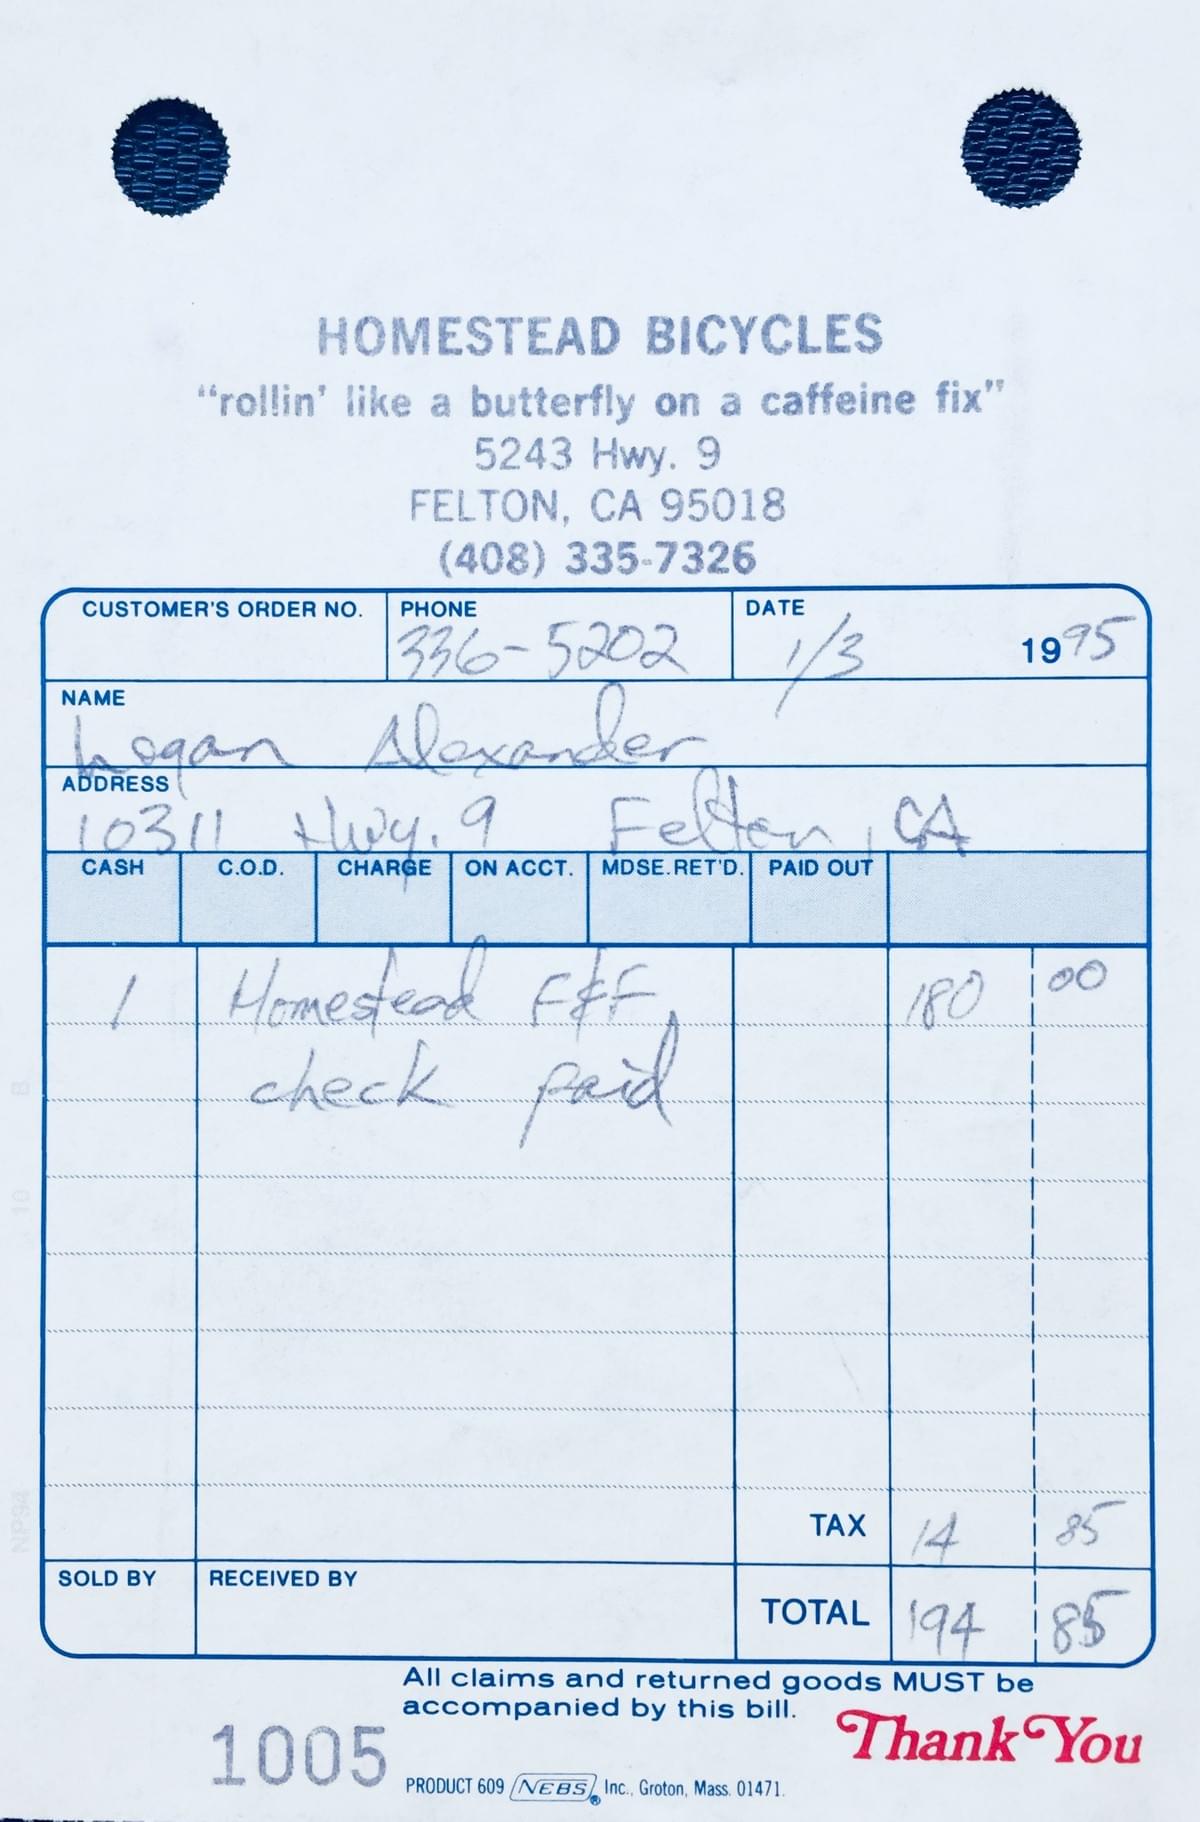 HOMESTEAD BICYCLES
“rollin’ like a butterfly on a caffeine fix”
5243 Hwy. 9
FELTON, CA 95018
(408) 335-7326
CUSTOMER'S ORDER NO. PHONE DATE
336-5202 1/3 1995
NAME
Logan Alexander
ADDRESS
10311 Hwy. 9 Felton, CA
CASH C.O.D. CHARGE ON ACCT. MDSE. RET'D. PAID OUT
1 Homestead F&F 180 00
check paid
TAX 14 85
SOLD BY RECEIVED BY TOTAL 194 85
All claims and returned goods MUST be
accompanied by this bill.
Thank You
1005
PRODUCT 609 NEBS Inc., Groton, Mass. 01471.